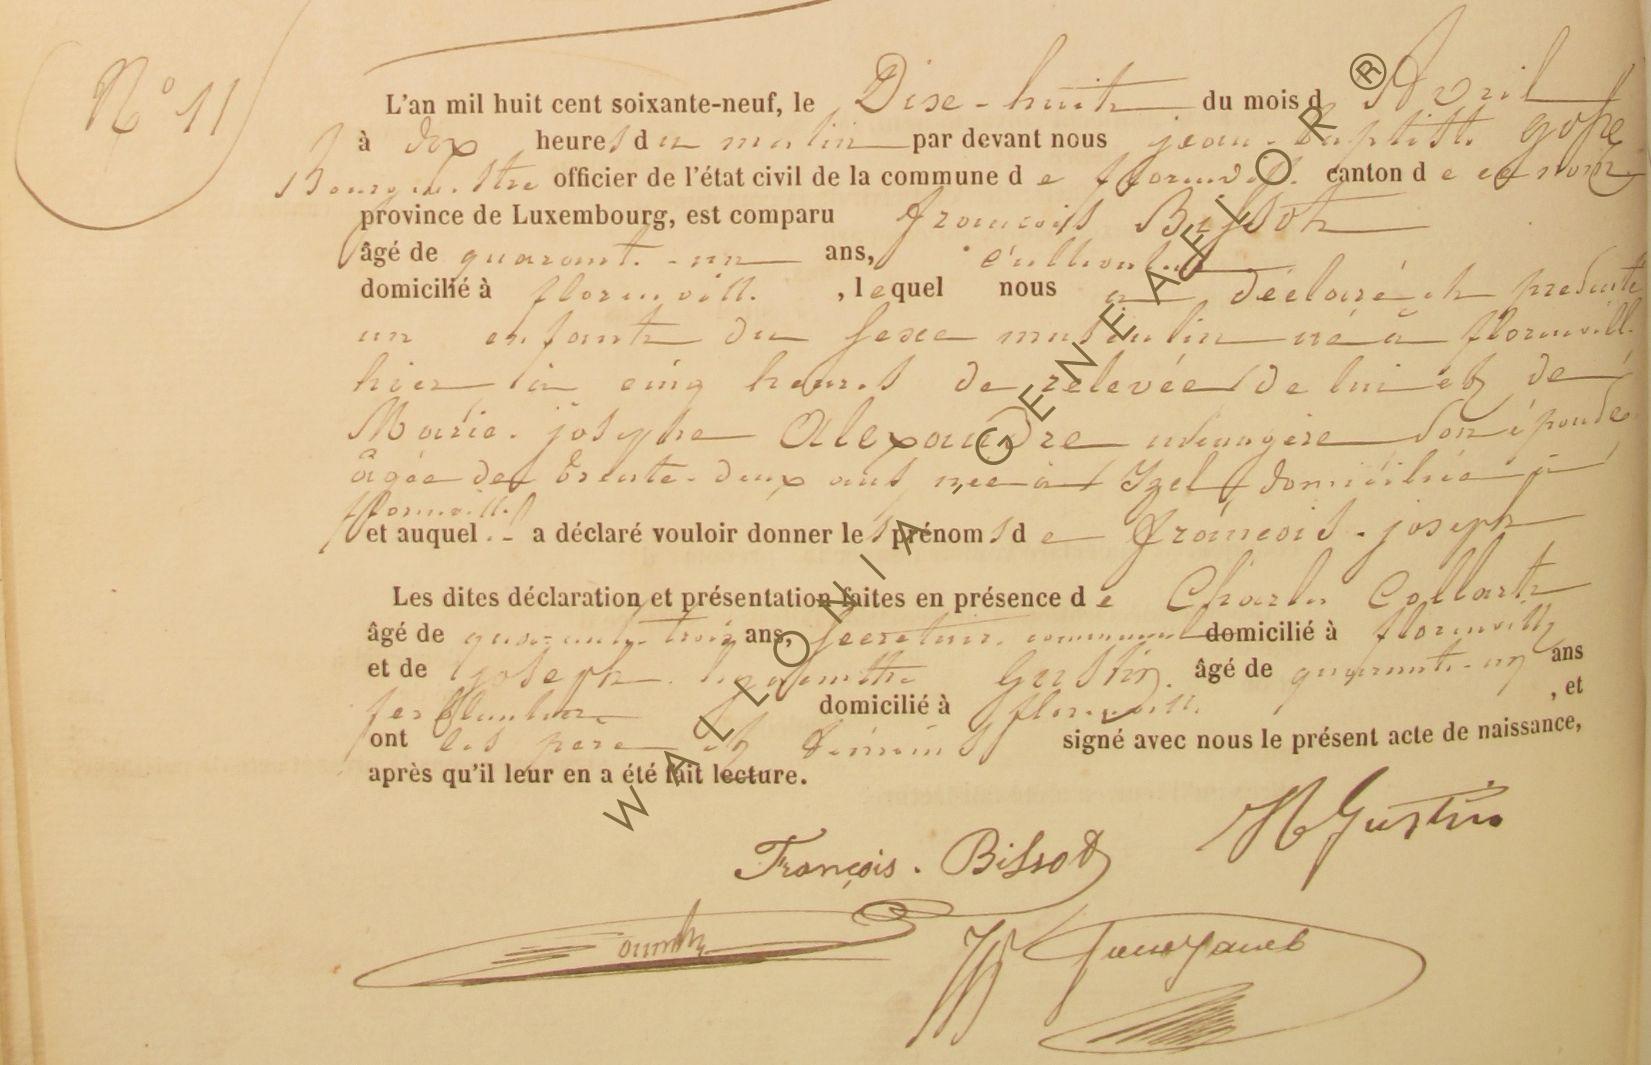 N° 11
L'an mil huit cent soixante-neuf, le Dixe-huit du mois d'Avril
à dix heures du matin par devant nous jean-baptiste
Bourgmestre officier de l'état civil de la commune de florenville canton de ce nom
province de Luxembourg, est comparu françois Bissot
âgé de quarante-un ans, Cultivateur
domicilié à florenville, lequel nous a déclaré et présenté
un enfant du sexe masculin né à florenville
hier à cinq heures de relevée de lui et de
Marie-josephe Alexandre ménagère son épouse
âgée de trente-deux ans née à Izel domiciliée à
florenville
et auquel il a déclaré vouloir donner les prénoms de françois-joseph
Les dites déclaration et présentation faites en présence de Charles Collart
âgé de quarante-trois ans, secrétaire communal domicilié à florenville
et de joseph Gustin âgé de quarante-un ans
ferblantier domicilié à florenville, et
ont les père et témoins signé avec nous le présent acte de naissance,
après qu'il leur en a été fait lecture.
François Bissot
Gustin
WALLONIA, GENEALOR ®